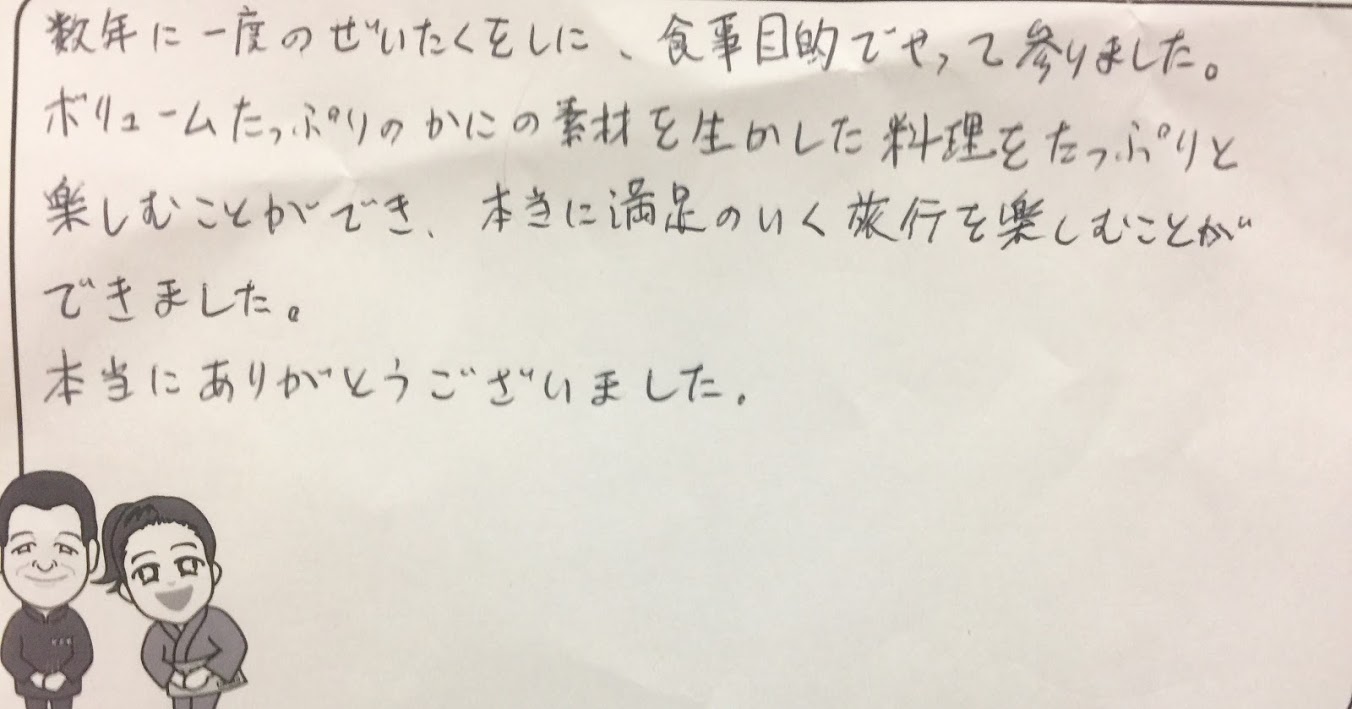 数年に一度のぜいたくをしに、食事目的でやって参りました。
ボリュームたっぷりのかにの素材を生かした料理をたっぷりと
楽しむことができ、本当に満足のいく旅行を楽しむことが
できました。
本当にありがとうございました。